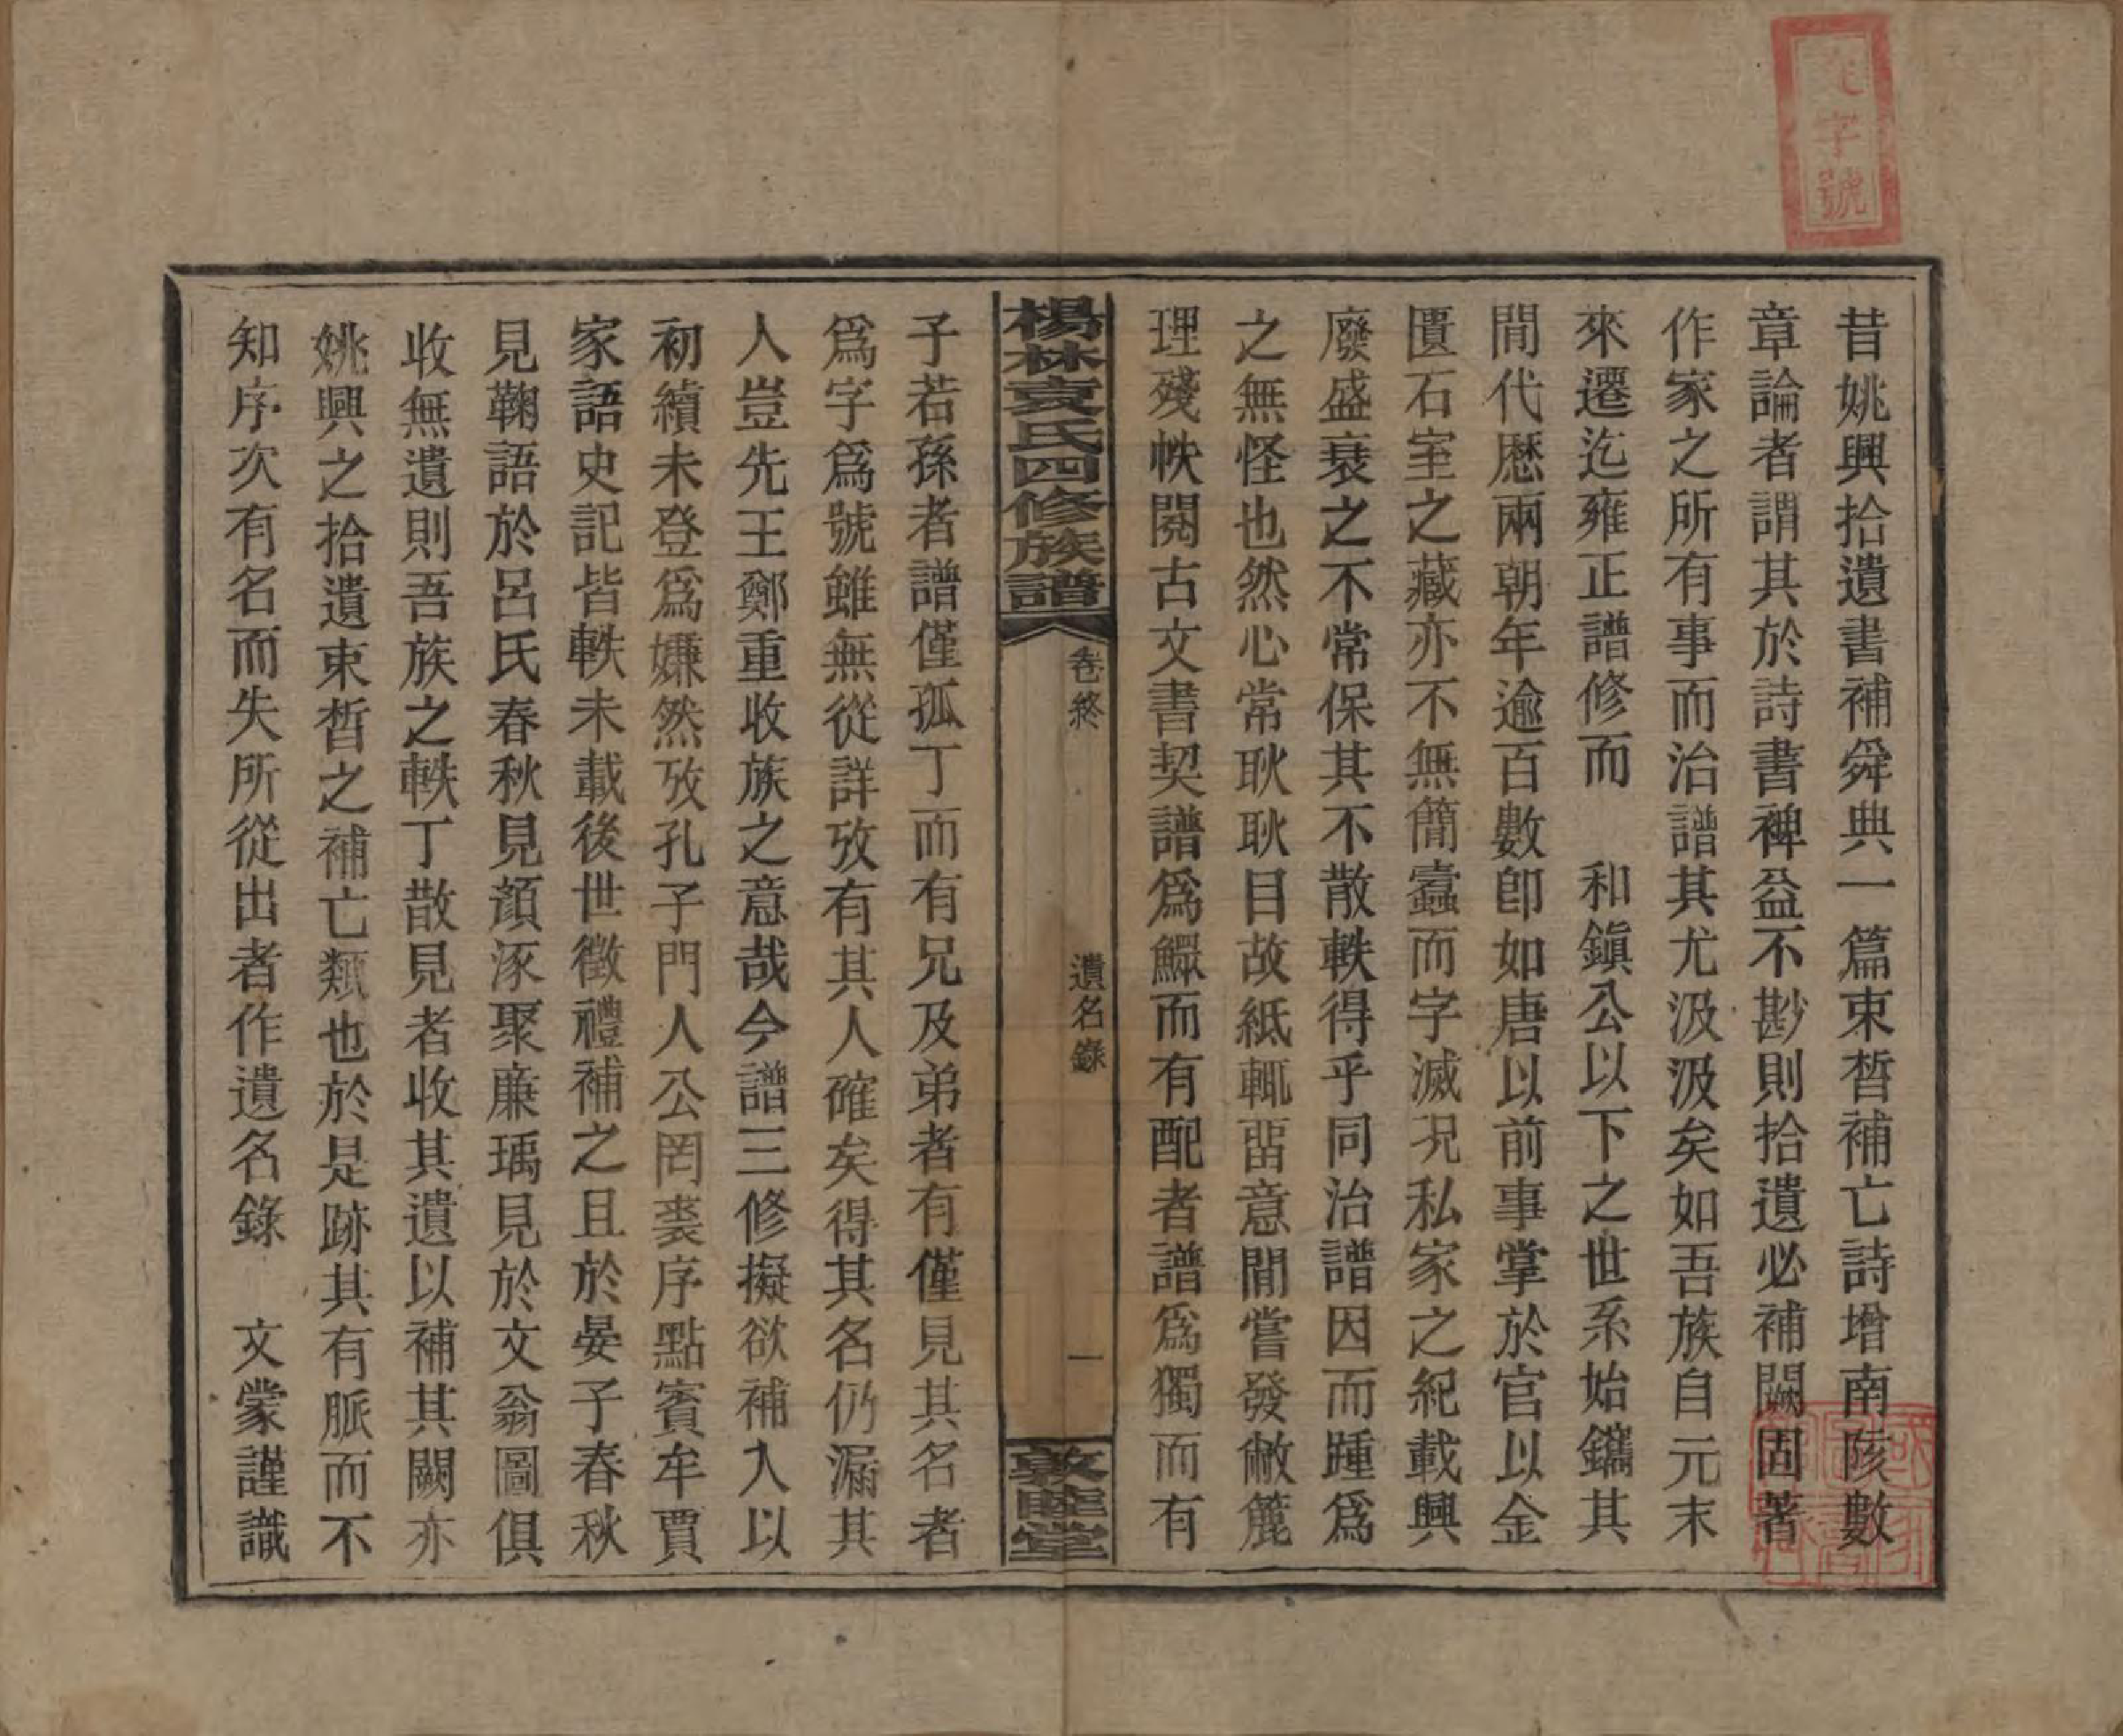 字號
昔姚興拾遺書補舜典一篇束晳補亡詩增南陔數
章論者謂其於詩書裨益不尠則拾遺必補闕固著
作家之所有事而治譜其尤汲汲矣如吾族自元末
來遷迄雍正譜修而　和鎭公以下之世系始鐫其
間代歷兩朝年逾百數卽如唐以前事掌於官以金
匱石室之藏亦不無簡蠹而字滅況私家之紀載興
廢盛衰之不常保其不散軼得乎同治譜因而踵爲
之無怪也然心常耿耿目故紙輒畱意間嘗發敝簏
理殘帙閱古文書契譜爲鰥而有配者譜爲獨而有
楊林袁氏四修族譜
卷終
遺名錄
一
敦睦堂
子若孫者譜僅孤丁而有兄及弟者有僅見其名者
爲字爲號雖無從詳攷有其人確矣得其名仍漏其
人豈先王鄭重收族之意哉今譜三修擬欲補入以
初續未登爲嫌然攷孔子門人公罔裘序點賓牟賈
家語史記皆軼未載後世徵禮補之且於晏子春秋
見鞠語於呂氏春秋見顏涿聚廉瑀見於文翁圖俱
收無遺則吾族之軼丁散見者收其遺以補其闕亦
姚興之拾遺束晳之補亡類也於是跡其有脈而不
知序次有名而失所從出者作遺名錄　文蒙謹識